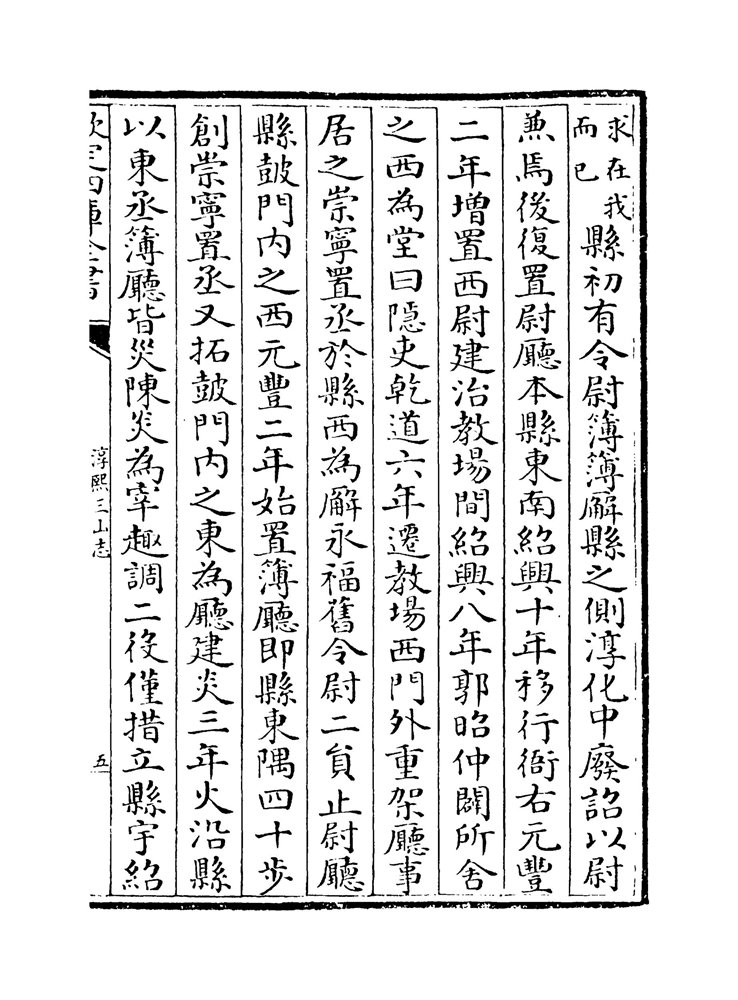 求在我
而已縣初有令尉簿簿廨縣之側淳化中廢詔以尉
兼焉後復置尉廳本縣東南紹興十年移行衙右元豐
二年增置西尉建治教場間紹興八年郭昭仲闢所舍
之西為堂曰隠吏乾道六年遷教場西門外重架廳事
居之崇寧置丞於縣西為廨永福舊令尉二員止尉廳
縣鼓門内之西元豐二年始置簿廳即縣東隅四十步
創崇寧置丞又拓鼓門内之東為廳建炎三年火沿縣
以東丞簿廳皆災陳炎為宰趣調二役僅措立縣宇紹
欽定四庫全書
淳熙三山志
五